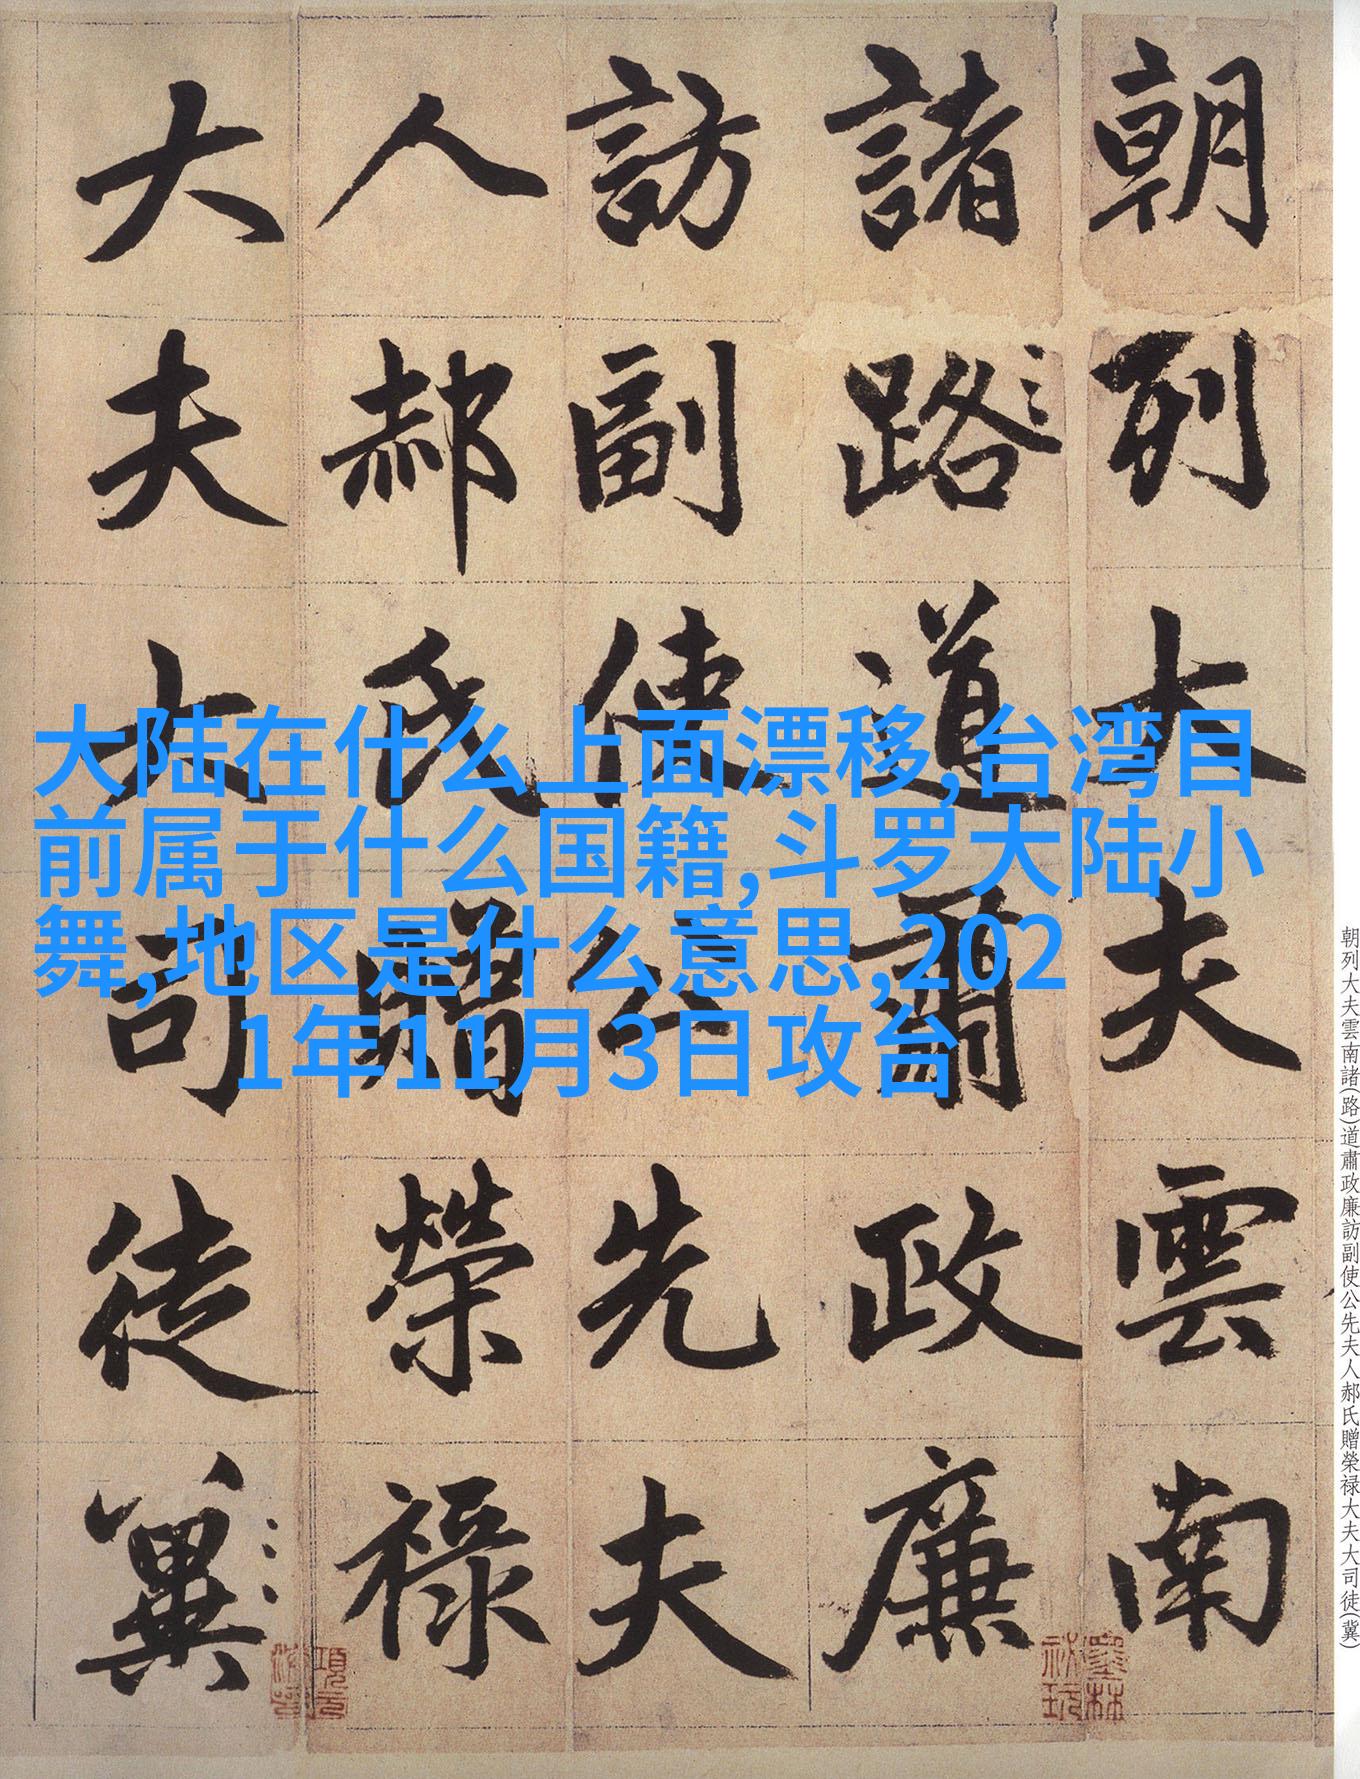 朝列大夫雲南
諸路道肅政廉
訪副使公先夫
人郝氏贈榮祿
大夫大司徒冀
大陆在什么上面漂移,台湾目
前属于什么国籍,斗罗大陆小
舞,地区是什么意思,202
1年11月3日攻台
朝列大夫雲南諸(路)道肅政廉訪副使公先夫人郝氏贈榮禄大夫大司徒(冀)